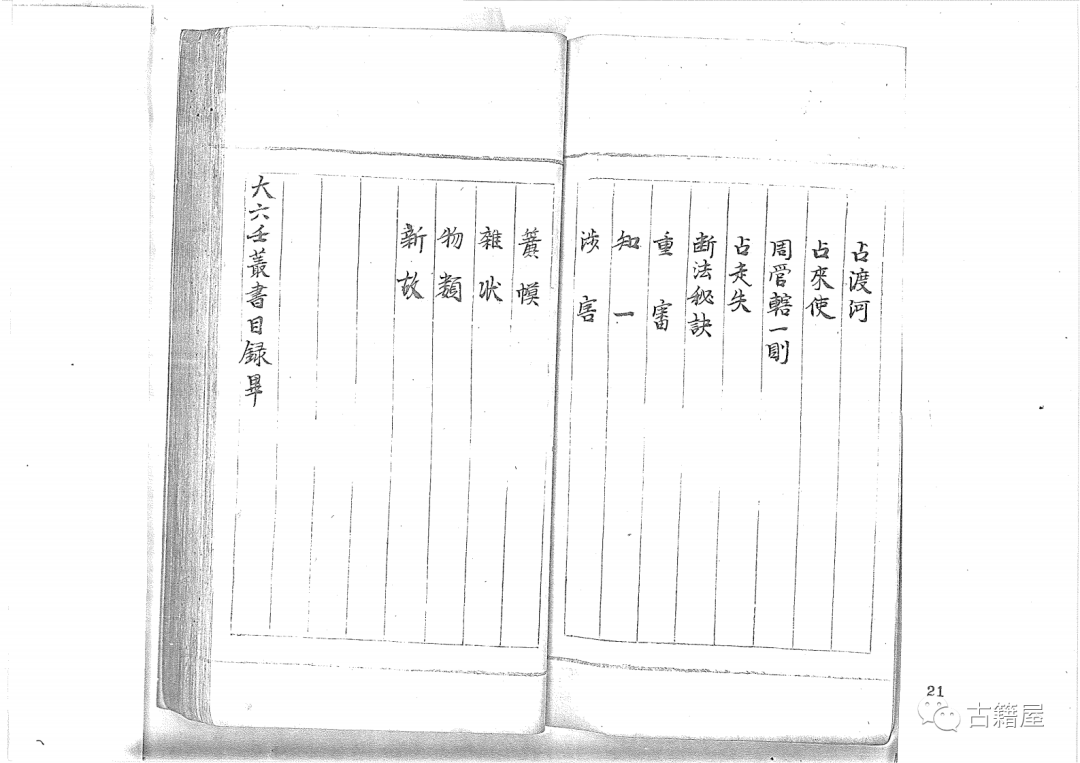 占渡河
占來使
周管轄一則
占走失
断法秘訣
重審
知一
涉害
雜狀
物類
新故
大六壬叢書目録畢
21
古籍屋